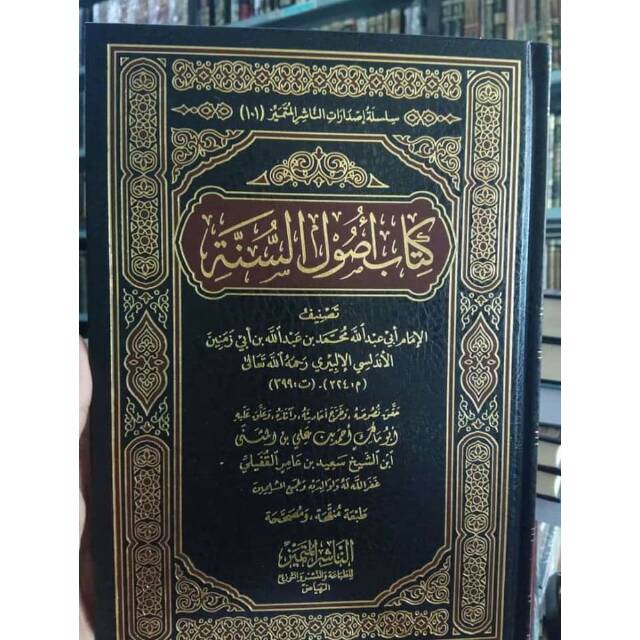 سلسلة إصدارات الناشر المتميز (١٠١)
كتاب أصول السنة
تصنيف
الإمام أبي عبد الله محمد بن عبد الله بن أبي زمنين
الأندلسي الإلبيري رحمه الله تعالى
(م:٣٢٤). (ت:٣٩٩)
حقق نصوصه، وخرج أحاديثه، وآثاره، وعلق عليه
أبو مالك أحمد بن علي بن المثنى
ابن الشيخ سعيد بن عامر القفيلي
غفر الله له ولوالديه ولجميع المسلمين
طبعة منقحة، ومصححة
الناشر المتميز
للطباعة والنشر والتوزيع
الرياض